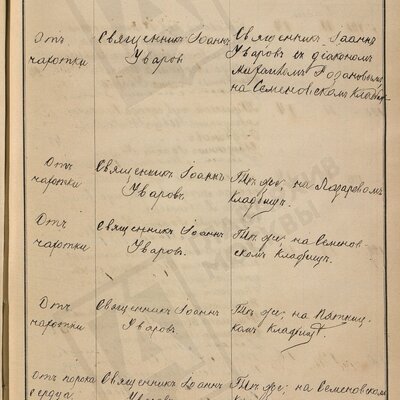 Отъ
чахотки
Священникъ Іоаннъ
Уваровъ
Священникъ Іоаннъ
Уваровъ съ діакономъ
на Семеновскомъ кладби-
Отъ
чахотки
Священникъ Іоаннъ
Уваровъ.
Тѣ же; на Лазаревомъ
кладбищѣ.
Отъ
чахотки
Священникъ Іоаннъ
Уваровъ.
Тѣ же; на Семенов-
скомъ кладбищѣ.
Отъ
чахотки
Священникъ Іоаннъ
Уваровъ.
Тѣ же; на Пятниц-
комъ кладбищѣ
Отъ порока
сердца
Священникъ Іоаннъ
Уваровъ
Тѣ же; на Семеновскомъ